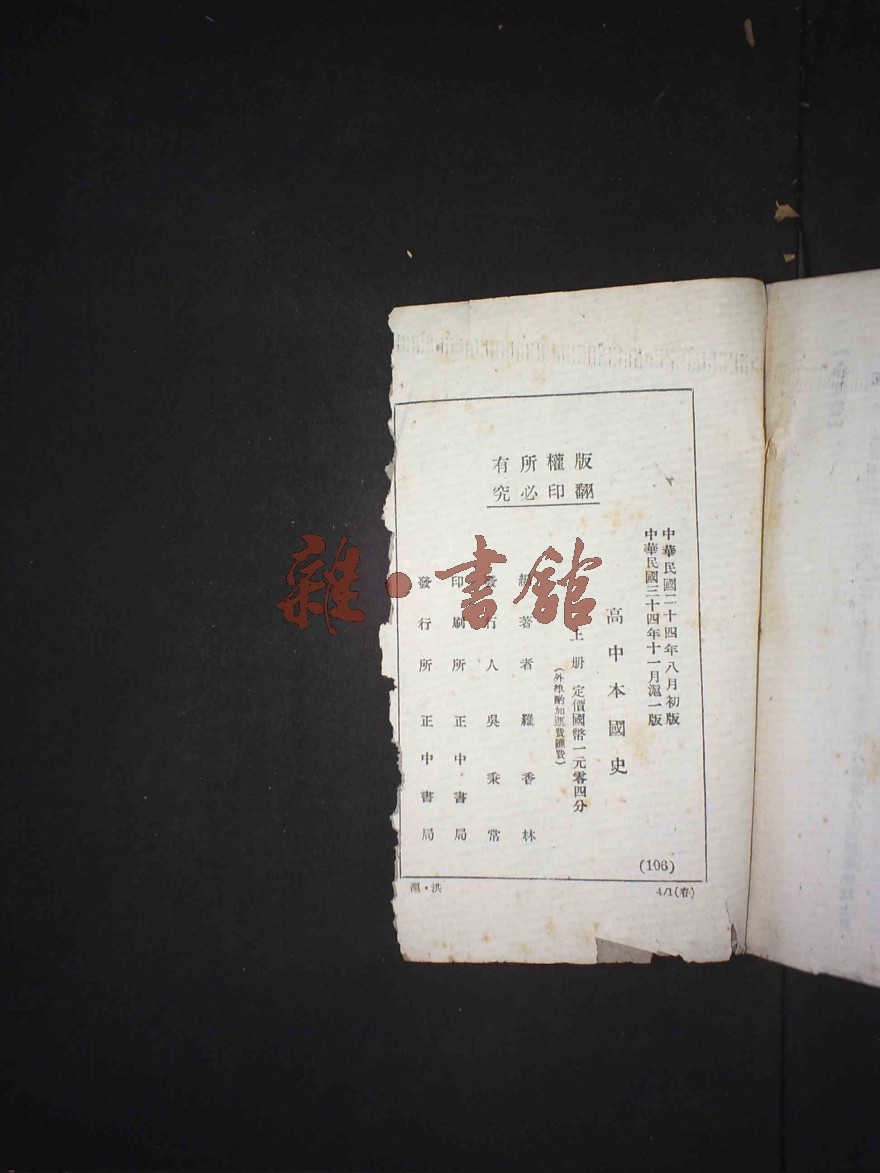 中華民國二十四年八月初版
中華民國三十四年十一月滬一版
高中本國史
上册 定價國幣一元零四分
(外埠酌加運費匯費)
版權所有
翻印必究
編著者 羅香林
發行人 吳秉常
印刷所 正中書局
發行所 正中書局
(106)
滬·洪
4/1(春)
雜·書館